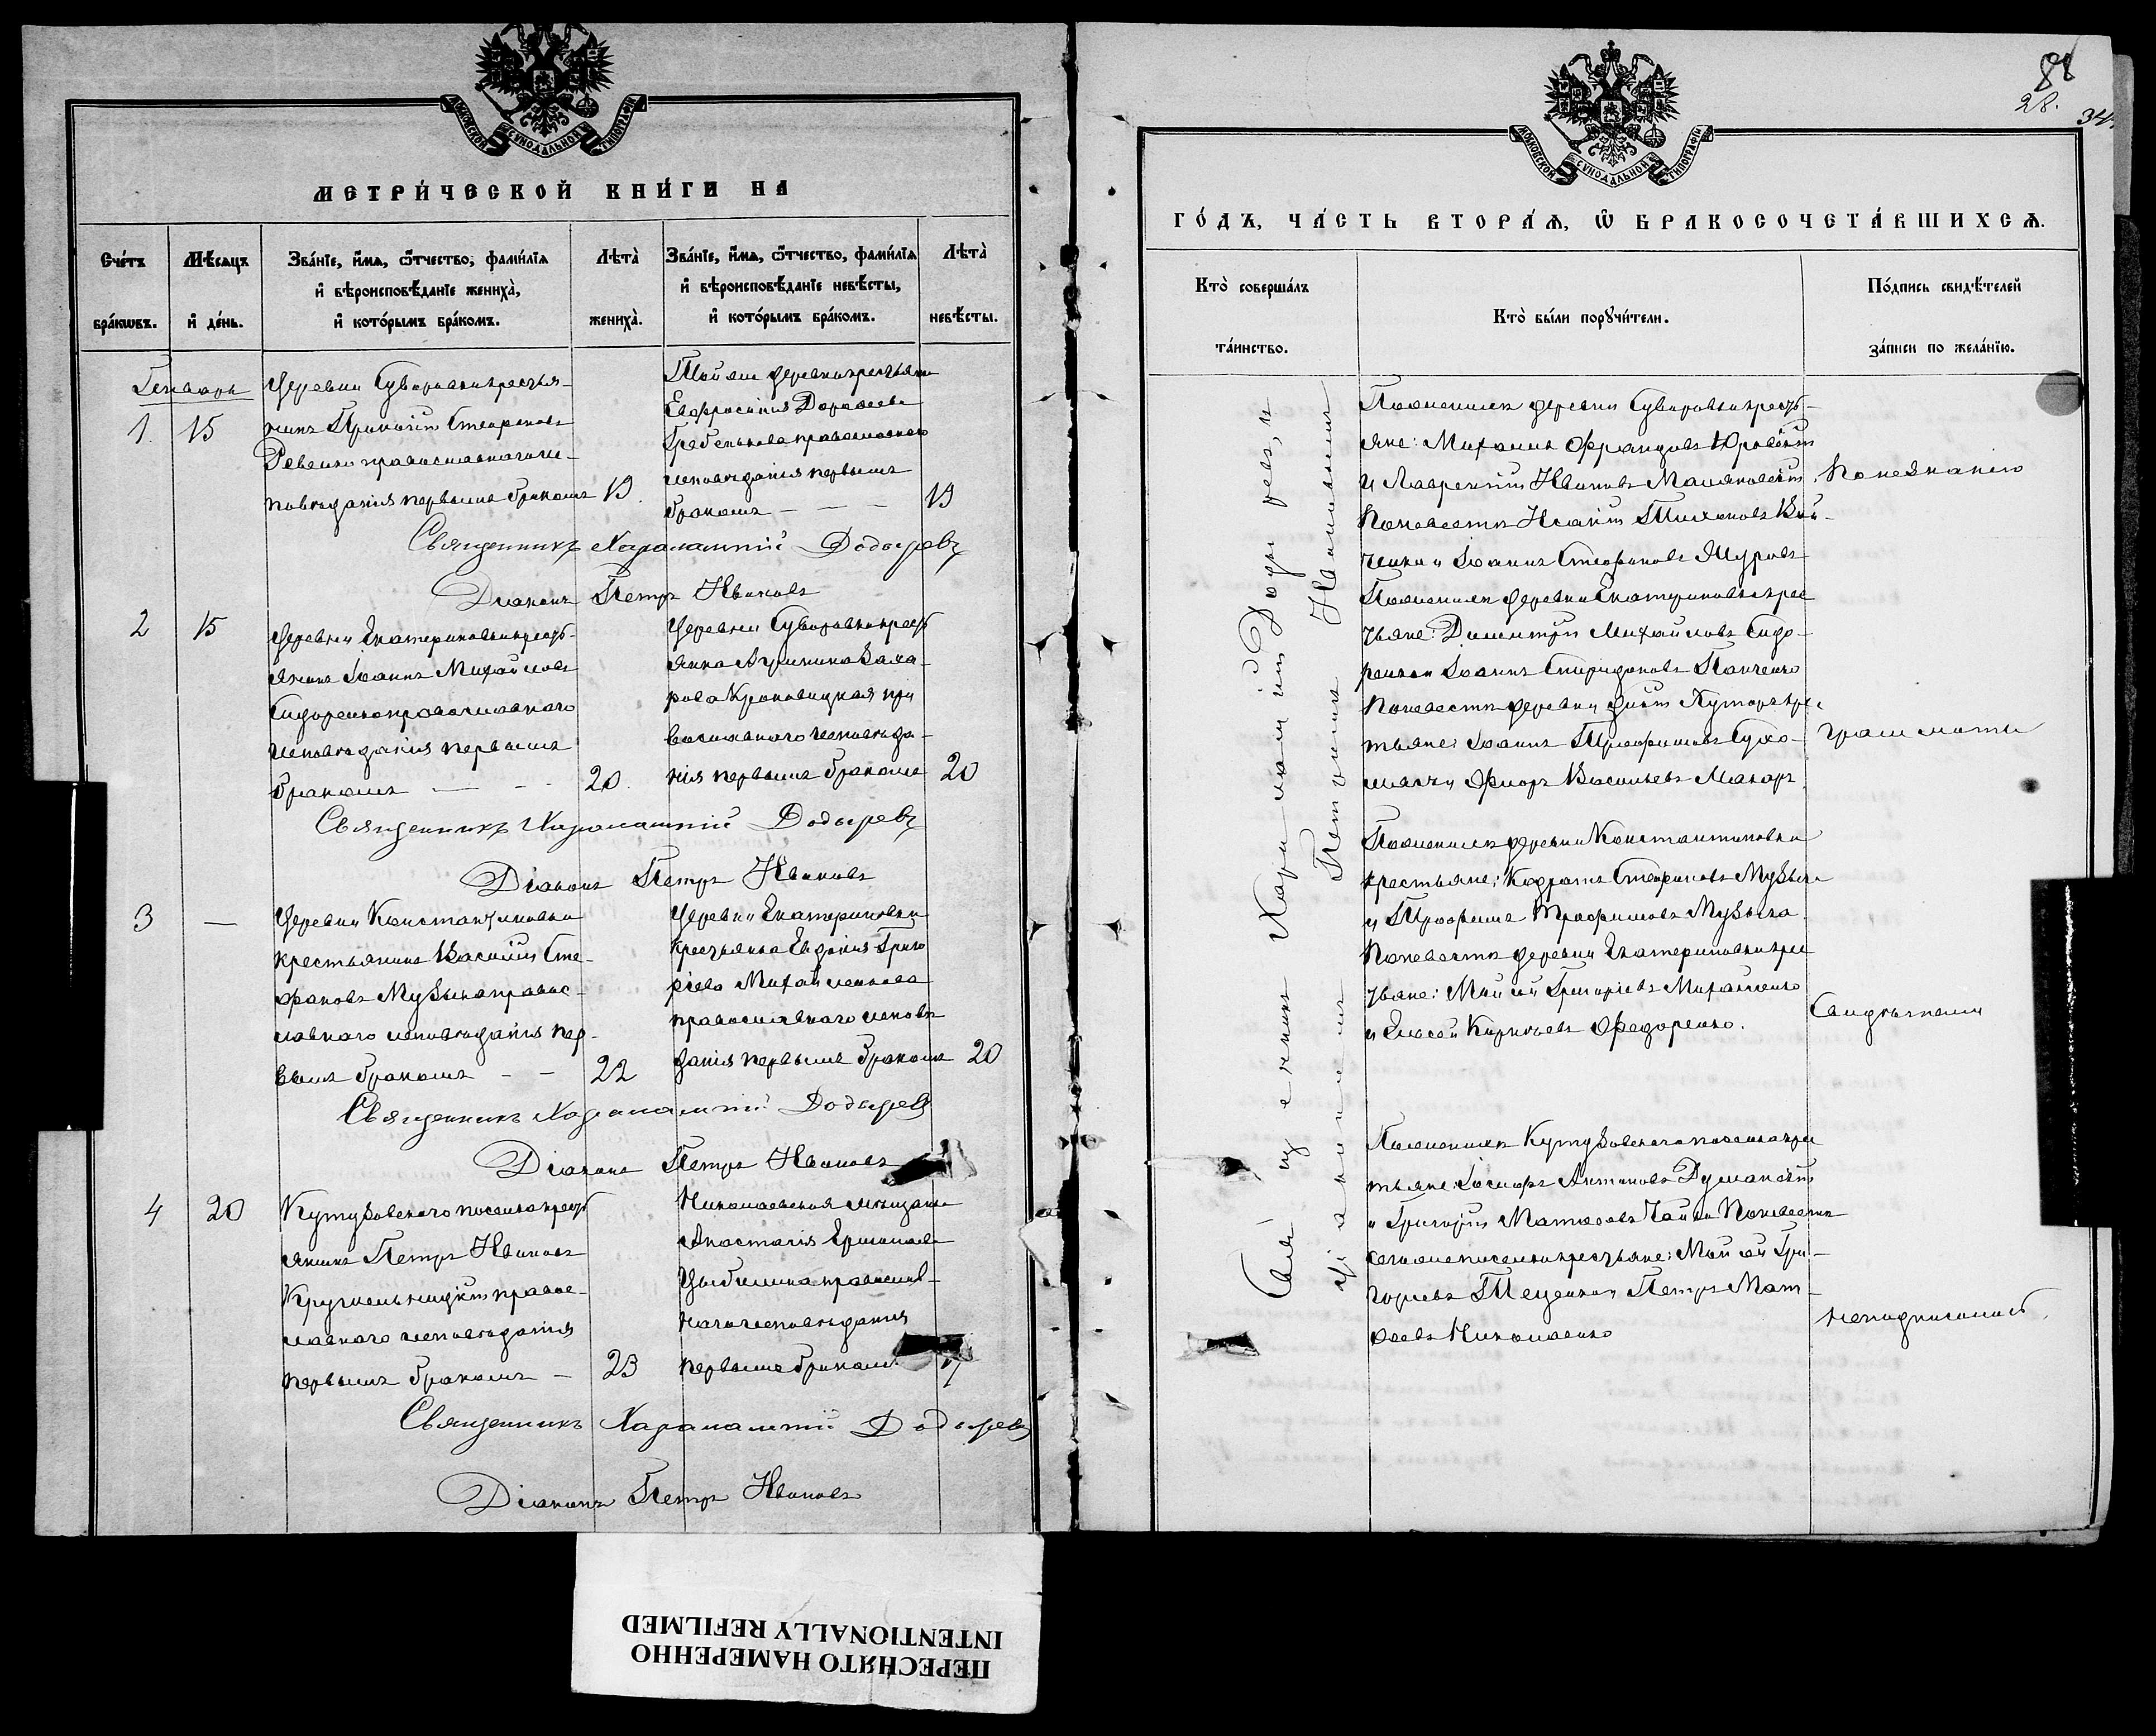 МЕТРИ́ЧЕСКОЙ КНИ́ГИ НА
Сче́тъ бра́кѡвъ.
Мѣ́сяцъ и҆ де́нь.
Зва́нїе, и҆́мѧ, ѻ҆́тчество, фами́лїѧ
и҆ вѣроисповѣ́данїе жениха̀,
и҆ кото́рымъ бра́комъ.
Лѣта̀ жениха̀.
Зва́нїе, и҆́мѧ, ѻ҆́тчество, фами́лїѧ
и҆ вѣроисповѣ́данїе невѣ́сты,
и҆ кото́рымъ бра́комъ.
Лѣта̀ невѣ́сты.
Генварь
1. 15
Деревни Суворовки крестья-
нинъ Прокопій Стефановъ
Ревенко православнаго ис-
повѣданія первымъ бракомъ 19.
Той же деревни крестьянка
Евфросинія Дорофеева
православнаго
исповѣданія первымъ
бракомъ — — — 19
Священникъ Харалампій Додыревъ
Діаконъ Петръ Ивановъ
2 15
Деревни Екатериновки крест-
янинъ Іоаннъ Михайловъ
Сидоренко православнаго
исповѣданія первымъ
бракомъ — - - 20.
Деревни Суворовки крест
янка Акилина Заха-
рова пра
вославнаго исповѣда-
нія первымъ бракомъ 20
Священникъ Харалампій Додыревъ
Діаконъ Петръ Ивановъ
3 —
Деревни Константиновки
крестьянинъ Василій Сте-
фановъ Музыка правос-
лавнаго исповѣданія пер-
вымъ бракомъ - - 22
Деревни Екатериновки
крестьянка Евдокія Григо
ріева Михайленкова
православнаго исповѣ
данія первымъ бракомъ 20
Священникъ Харалампій Додыревъ
Діаконъ Петръ Ивановъ
4 20
Кутузовскаго поселка крест
янинъ Петръ Ивановъ
Кружельницкій правос-
лавнаго исповѣданія
первымъ бракомъ — 23
Николаевская мѣщанка
Анастасія
Цыбулина православ-
наго исповѣданія
первымъ бракомъ
Священникъ Харалампій Додыревъ
Діаконъ Петръ Ивановъ
ГО́ДЪ, ЧА́СТЬ ВТОРА́Ѧ, Ѡ҆ БРАКОСОЧЕТА́ВШИХСѦ.
28.
34.
Кто̀ соверша́лъ та́инство.
Кто̀ бы́ли порꙋчи́тели.
По́дпись свидѣ́телей за́писи по жела́нїю.
Священникъ Харалампій Додыревъ, и
діакономъ Петромъ Ивановымъ
По женихѣ деревни Суворовки крест-
яне: Михаилъ Францовъ Юровскій
и Лаврентій Ивановъ Маляновскій.
По невѣстѣ Исаій Тихоновъ Вой-
ченко и Іоаннъ Стефановъ Журовъ
По незнанію
По женихѣ деревни Екатериновки крес
тьяне: Димитрій Михайловъ Сидо-
ренко и Іоаннъ Спиридоновъ Панченко
По невѣстѣ деревни Хуторъ кре
тьяне: Іоаннъ Трофимовъ Сухо-
млячи Флоръ Васильевъ Макаръ.
грамоты
По женихѣ деревни Константиновки
крестьяне: Кодратъ Стефановъ Музыка
и Трофимъ Трофимовъ Музыка.
По невѣстѣ деревни Екатериновки крес
тьяне: Моисей Григоріевъ Михаленко
и Елисей Карповъ Федоренко.
Свидѣтели
По женихѣ Кутузовскаго поселка крес
тьяне: Іосифъ Антоновъ Думанскій
и Григорій Матвѣевъ Чайка По невѣстѣ
тогоже поселка крестьяне: Моисей Гри-
горьевъ Тещенко и Петръ Мат-
ѳеевъ Николаенко
неподписались.
МОСКОВСКОЙ СѴНОДАЛЬНОЙ ТИПОГРАФІИ
МОСКОВСКОЙ СѴНОДАЛЬНОЙ ТИПОГРАФІИ
ПЕРЕСНЯТО НАМЕРЕННО
INTENTIONALLY REFILMED